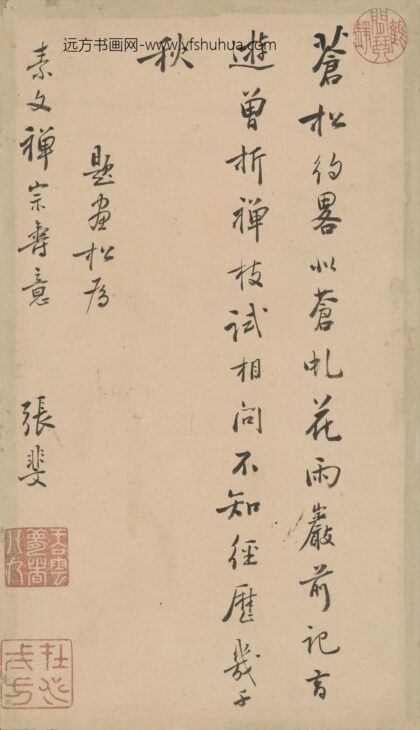 远方书画网-www.yfshuhua.com
蒼松約畧似蒼虬花雨巖前記昔
遊曾折禪枝試相問不知經歷幾千
秋
題畫松為
素文禪宗壽意 張斐